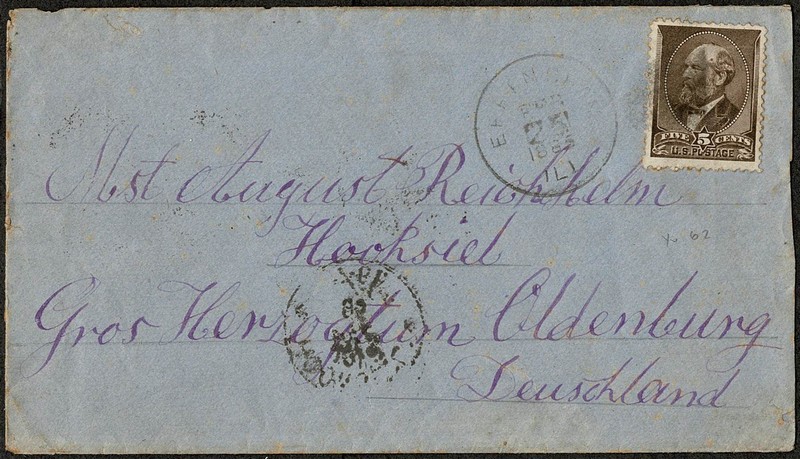 FIVE 5 CENTS
U.S. POSTAGE
ILL
Mst August Reichhelm
Hooksiel
Gros Herzogtum Oldenburg
Deuschland
62